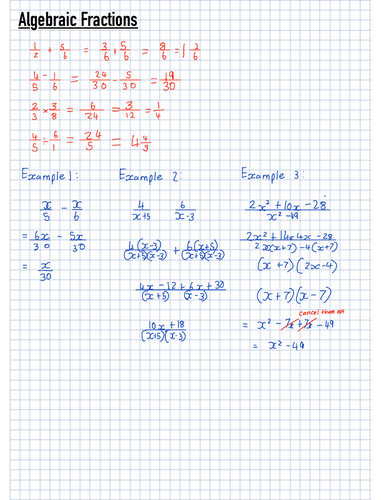 Algebraic Fractions
1/2 + 5/6 = 3/6 + 5/6 = 8/6 = 1 2/6
4/5 - 1/6 = 24/30 - 5/30 = 19/30
2/3 × 3/8 = 6/24 = 3/12 = 1/4
4/5 ÷ 6/1 = 24/5 = 4 4/5
Example 1:
x/5 - x/6
= 6x/30 - 5x/30
= x/30
Example 2:
4/x+5 6/x-3
4(x-3)/(x+5)(x-3) + 6(x+5)/(x+5)(x-3)
4x-12+6x+30/(x+5)(x-3)
10x+18/(x+5)(x-3)
Example 3:
2x²+10x-28/x²-49
2x²+14x-4x-28
2x(x+7)-4(x+7)
(x+7)(2x-4)
(x+7)(x-7)
cancel them out
= x² - 7x + 7x - 49
= x² - 49